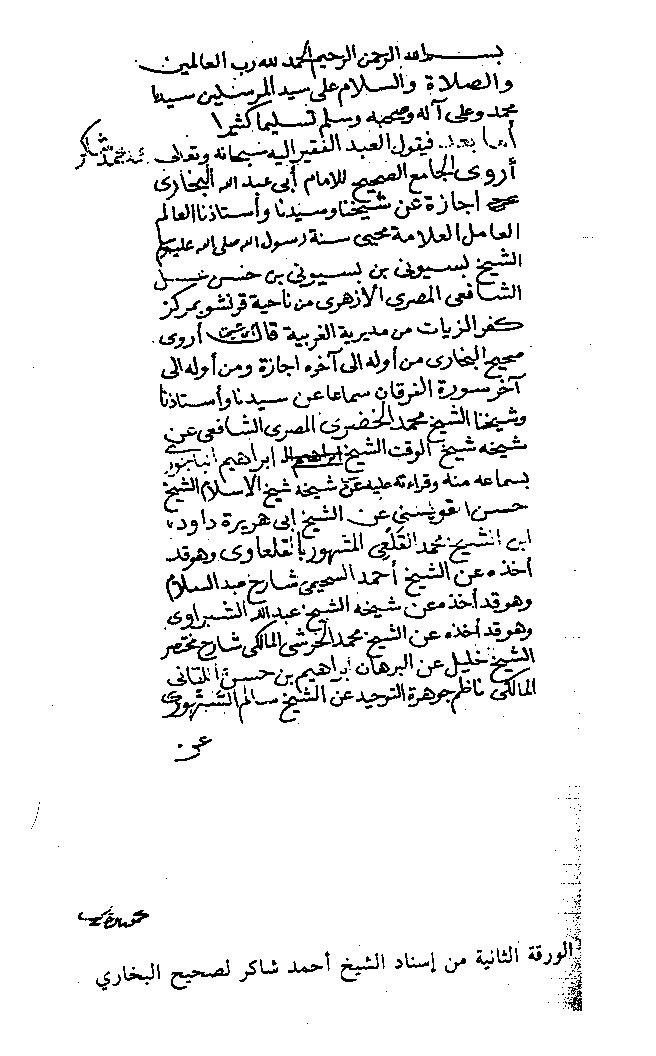 بسم الله الرحمن الرحيم الحمد لله رب العالمين
والصلاة والسلام على سيد المرسلين سيدنا
محمد وعلى آله وصحبه وسلم تسليما كثيرا
أما بعد فيقول العبد الفقير اليه سبحانه وتعالى محمد شاكر
أروى الجامع الصحيح للامام أبى عبد الله البخارى
اجازة عن شيخنا وسيدنا وأستاذنا العالم
العامل العلامة محيى سنة رسول الله صلى الله عليه وسلم
الشيخ بسيونى بن بسيونى بن حسن عسل
الشافعى المصرى الأزهرى من ناحية قرنشو بمركز
كفر الزيات من مديرية الغربية قال أروى
صحيح البخارى من أوله الى آخره اجازة ومن أوله الى
آخر سورة الفرقان سماعا عن سيدنا وأستاذنا
وشيخنا الشيخ محمد الخضرى المصرى الشافعى عن
شيخه شيخ الوقت الشيخ ابراهيم الباجورى
بسماعه منه وقراءته عليه عن شيخه شيخ الاسلام الشيخ
حسن القويسنى عن الشيخ ابى هريرة داود
ابن الشيخ محمد القلعى المشهور بالقلعاوى وهو قد
أخذه عن الشيخ أحمد السحيمى شارح عبد السلام
وهو قد أخذه عن شيخه الشيخ عبد الله الشبراوى
وهو قد أخذه عن الشيخ محمد الخرشى المالكى شارح مختصر
الشيخ خليل عن البرهان ابراهيم بن حسن اللقانى
المالكى ناظم جوهرة التوحيد عن الشيخ سالم السنهورى
عن
الورقة الثانية من إسناد الشيخ أحمد شاكر لصحيح البخاري